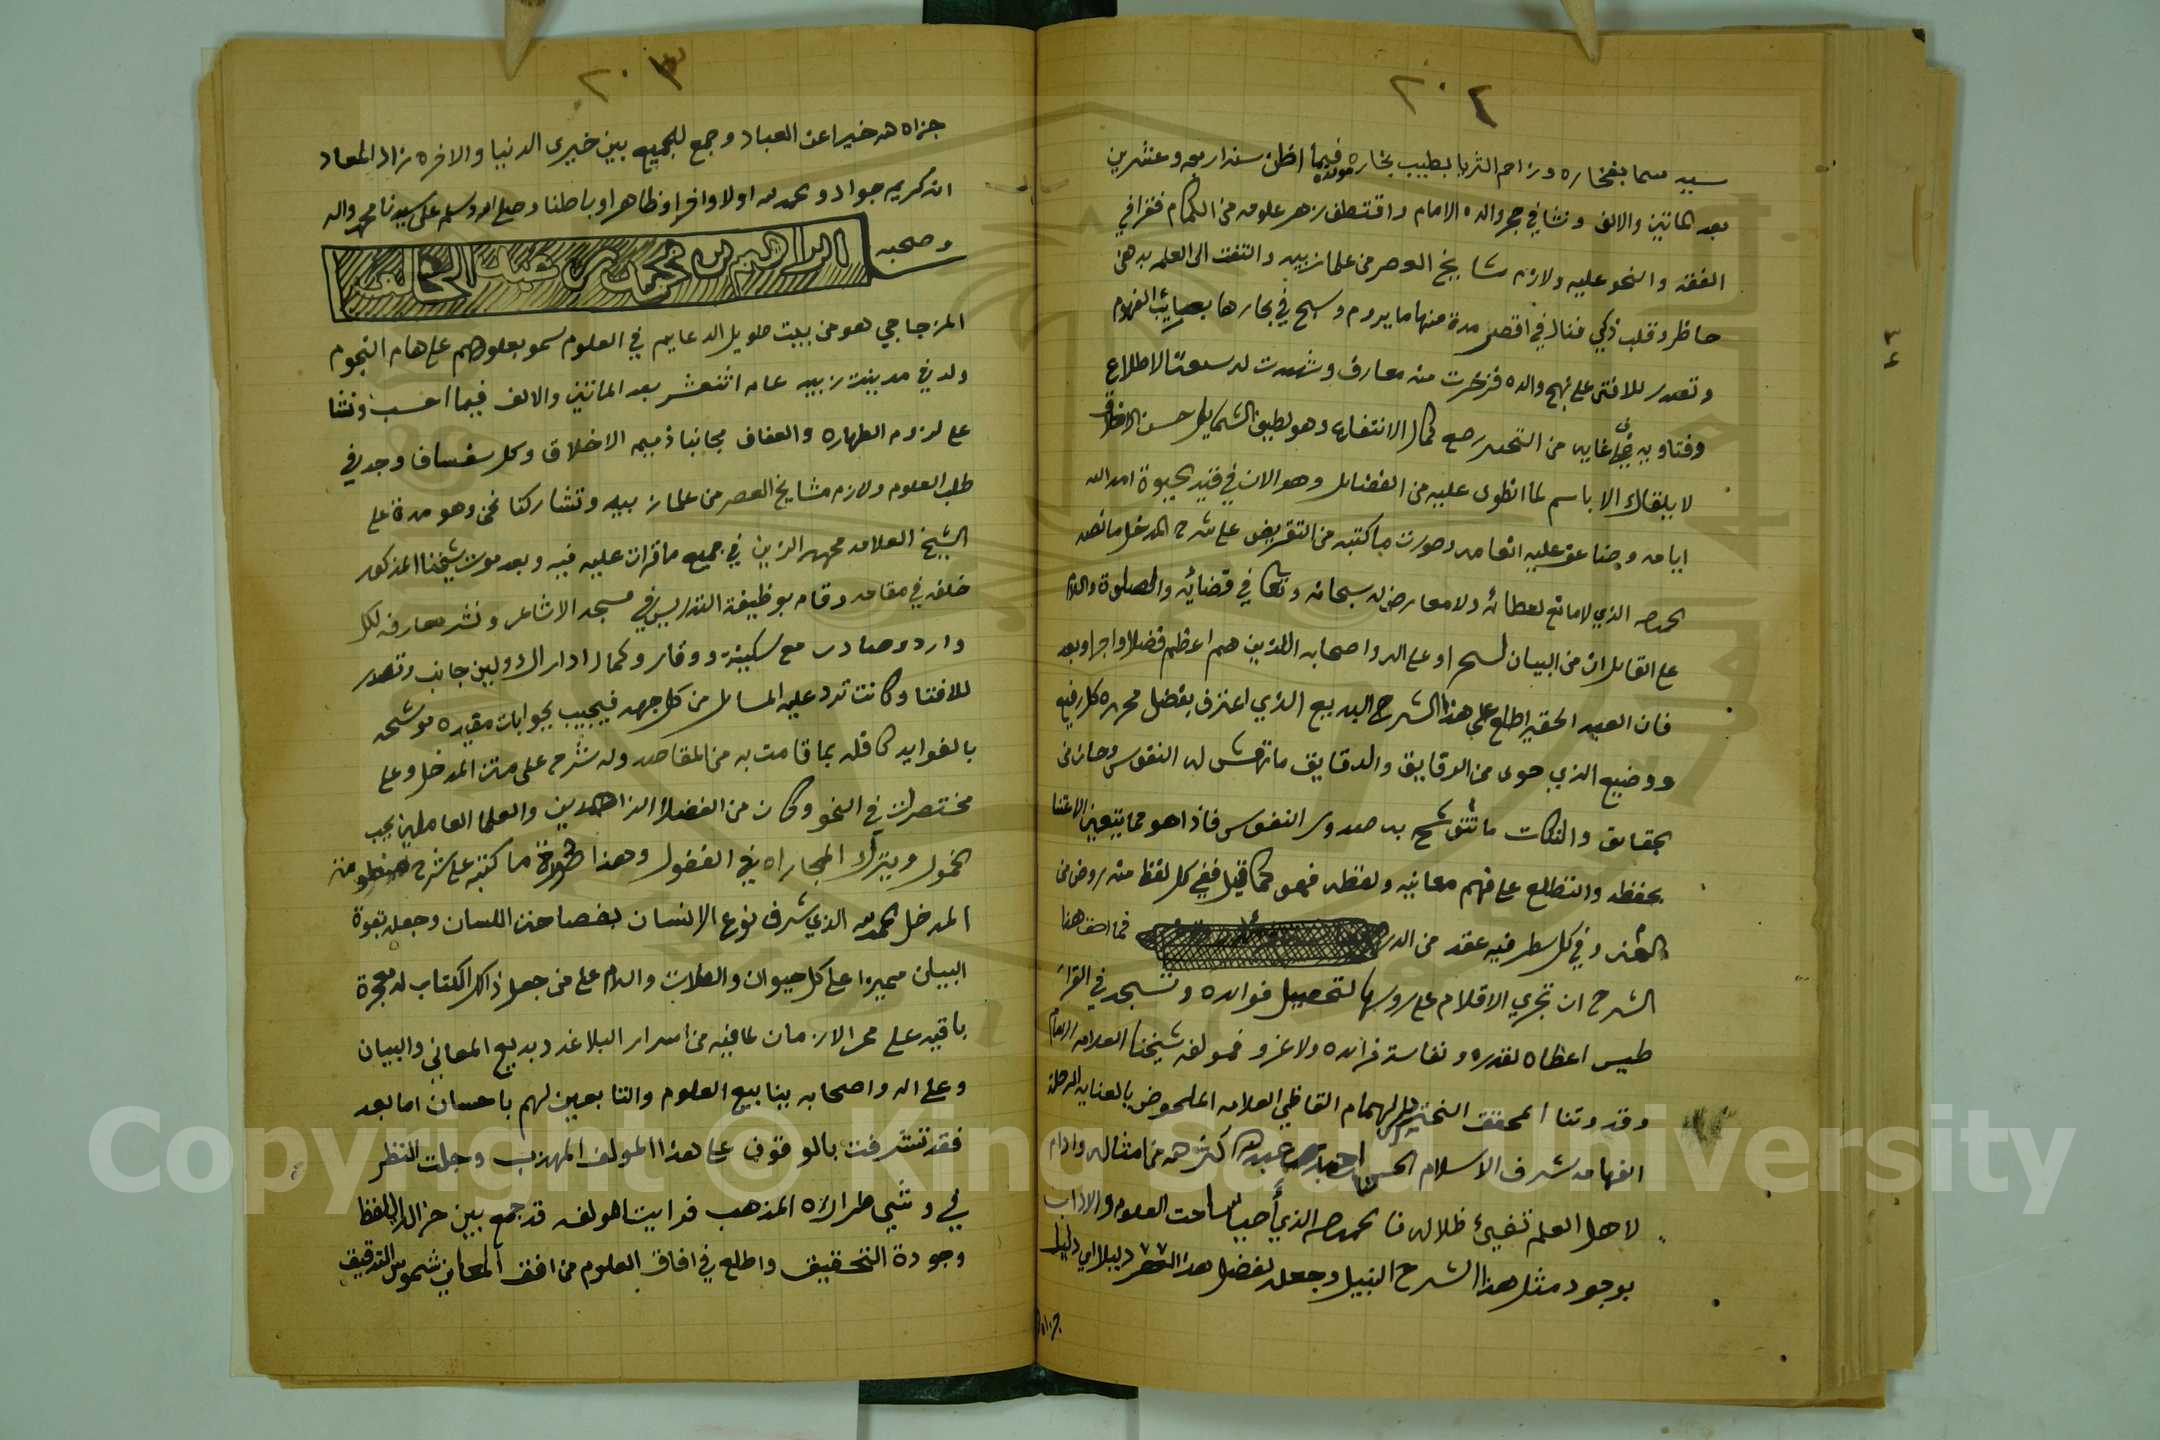 ٢٠٢
سيد سما بفخاره وزاحم الثريا بطيب نجاره مولده فيما اظن سنه اربعه وعشرين
بعد الماتين والالف ونشا في حجر والده الامام واقتطف زهر علومه من الكمام فقرا في
الفقه والنحو عليه ولازم مشايخ العصر من علما زبيد والتفت الى العلم بذهن
حاظر وقلب ذكي فنال في اقصر مدة منها ما يروم وسبح في بحارها بصائب الفهوم
وتصدر للافتى على نهج والده فزخرت منه معارف وشهدت له بسعة الاطلاع
وفتاويه في غايه من التحرير مع كمال الانتفاع وهو لطيف الشمايل حسن الاخلاق
لا يلقاك الا باسم لما انطوى عليه من الفضايل وهو الان في قيد الحيوة امد الله
ايامه وضاعف عليه انعامه وصورت ما كتبه من التقريض على شرح المدخل ما نصه
الحمد لله الذي لا مانع لعطائه ولا معارض له سبحانه وتعالى في قضائه والصلوة والسلام
على القايل ان من البيان لسحرا وعلى اله واصحابه الذين هم اعظم فضلا واجرا وبعد
فان العبد الحقير اطلع على هذا الشرح البديع الذي اعترف بفضل محرره كل رفيع
ووضيع الذي حوى من الرقايق والدقايق ما تهش له النفوس وحاز من
الحقايق والنكات ما تنشرح به صدور النفوس فاذا هو مما يتعين الاعتنا
بحفظه والتطلع على فهم معانيه ولفظه فهو كما قيل ففي كل لفظ منه روض من
المنى وفي كل سطر فيه عقد من الدر فما احق هذا
الشرح ان تجري الاقلام على روسها لتحصيل فوائده وتسجد في القراـ
طيس اعظاما لقدره ونفاسة فرائده ولا غرو فمولفه شيخنا العلامه الامام
وقدوتنا المحقق النحرير الهمام القاظي العلامه الملحوض بالعنايه الرحلة
الفهامه شرف الاسلام الحسن بن احمد بن عبد الله اكثر الله من امثاله وادام
لاهل العلم تفيئ ظلاله فالحمد لله الذي أحيا ساحت العلوم والاداب
بوجود مثل هذا الشرح النبيل وجعله لفضل هذا العصر دليلا اي دليل
جزاه
٢٠٣
جزاه الله خيرا عن العباد وجمع للجميع بين خيري الدنيا والاخره زاد المعاد
انه كريم جواد والحمد لله اولا واخرا وظاهرا وباطنا وصلى الله وسلم على سيدنا محمد واله
وصحبه ابراهيم بن محمد بن عبد الخالق
المزجاجي هو من بيت طويل الدعايم في العلوم سمو بعلومهم على هام النجوم
ولد في مدينة زبيد عام اثنعشر بعد الماتين والالف فيما احسب ونشا
على لزوم الطهاره والعفاف مجانبا ذميم الاخلاق وكل سفساف وجد في
طلب العلوم ولازم مشايخ العصر من علما زبيد وتشاركنا نحن وهو مدة على
الشيخ العلامه محمد الزين في جميع ما قرات عليه فيه وبعد موت شيخنا المذكور
خلفه في مقامه وقام بوظيفة التدريس في مسجد الاشاعر ونشر معارفه لكل
وارد وصادر مع سكينة ووقار وكمال ادارك ولين جانب وتصدر
للافتا وكانت ترد عليه المسائل من كل جهه فيجيب بجوابات مفيده موشحه
بالفوايد كافله بما قامت به من المقاصد وله شرح على متن المدخل وعلى
مختصرات في النحو وكان من الفضلا الزاهدين والعلما العاملين يحب
الخمول ويترك المجاراه في الفضول وهذا صورة ما كتبه على شرح منظومة
المدخل الحمد لله الذي شرف نوع الانسان بفصاحة اللسان وجعله بقوة
البيان مميزا على كل حيوان والصلاة والسلام على من جعل ذالك الكتاب له معجزة
باقيه على ممر الازمان لما فيه من اسرار البلاغه وبديع المعاني والبيان
وعلى اله واصحابه ينابيع العلوم والتابعين لهم باحسان اما بعد
فقد تشرفت بالوقوف على هذا المولف المهذب وجلت النظر
في وشي طرازه المذهب فرايت مولفه قد جمع بين جزالة اللفظ
وجودة التحقيق واطلع في افاق العلوم من افق المعاني شموس التدقيق
Copyright © King Saud University